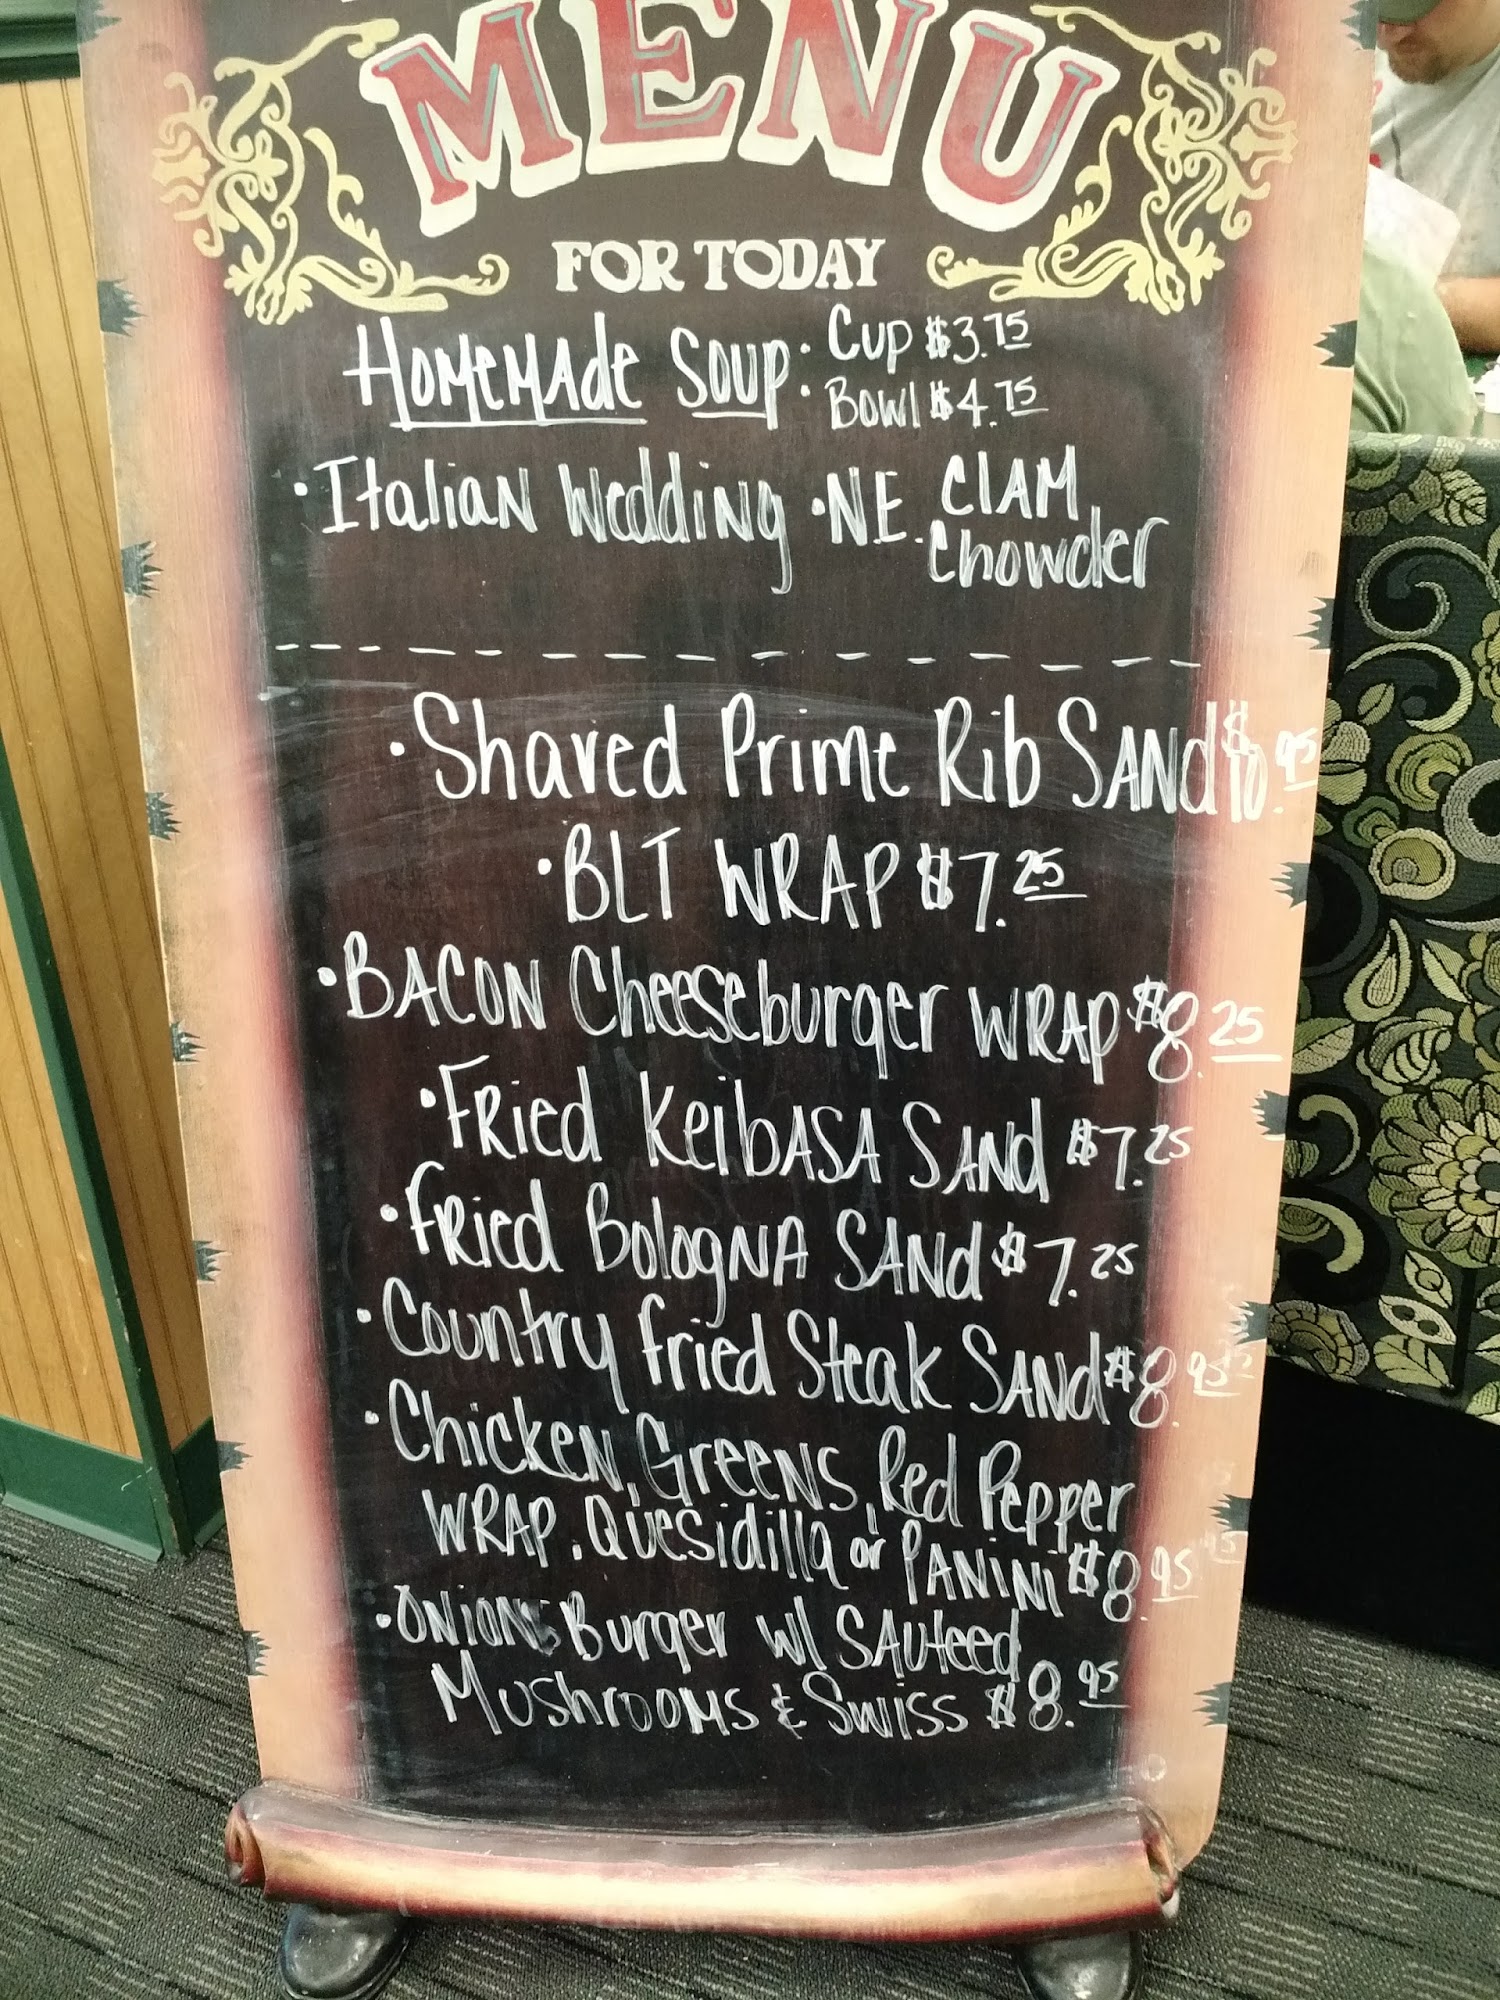 MENU
FOR TODAY
HOMEMADE SOUP: CUP $3.75
BOWl $4.75
• ItaliaN Wedding • N.E. ClAM
Chowder
• Shaved Prime Rib SANd $10.95
• BLT WRAP $7.25
• BACON Cheeseburger WRAP $8.25
• FRied KeibASA SANd $7.25
• FRied BologNA SANd $7.25
• Country Fried Steak SANd $8.95
• ChickeN, GreeNS, Red Pepper
WRAP, Quesidilla or PANiNi $8.95
• ONiONS Burger w/ SAUteed
MushrooMs & Swiss $8.95